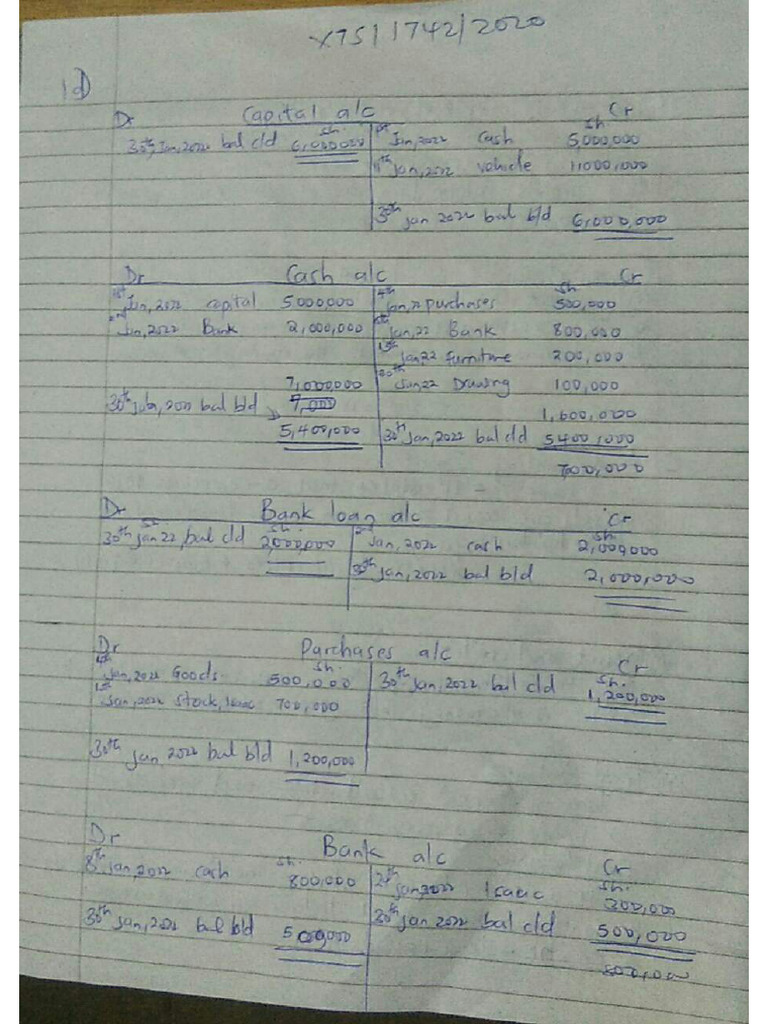 X7511742/2020
1d)
Dr Capital a/c Cr
sh sh
30th, Jan, 2022 bal c/d 6,000,000 1st Jan, 2022 cash 5,000,000
Jan, 2022 vehicle 1,000,000
30th Jan 2022 bal b/d 6,000,000
Dr Cash a/c Cr
sh
1st Jan, 2022 capital 5000,000 4th Jan, 22 purchases 500,000
2nd Jan, 2022 Bank 2,000,000 Jan, 22 Bank 800,000
Jan, 22 furniture 200,000
7,000,000 Jan 22 Drawing 100,000
30th 2022 bal b/d 1,600,000
5,400,000 30th Jan, 2022 bal c/d 5400,000
7000,000
Dr Bank loan a/c Cr
sh. sh.
30th Jan 22, bal c/d 2,000,000 Jan, 2022 cash 2,000,000
30th Jan, 2022 bal b/d 2,000,000
Dr Purchases a/c Cr
sh. sh.
4th Jan, 2022 Goods. 500,000 30th Jan, 2022 bal c/d 1,200,000
Jan, 2022 Stock, Isaac 700,000
30th Jan 2022 bal b/d 1,200,000
Dr Bank a/c Cr
sh. sh.
8th Jan, 2022 cash 800,000 Jan, 2022 Isaac 300,000
30th Jan, 2022 bal b/d 500,000 30th Jan 2022 bal c/d 500,000
800,000